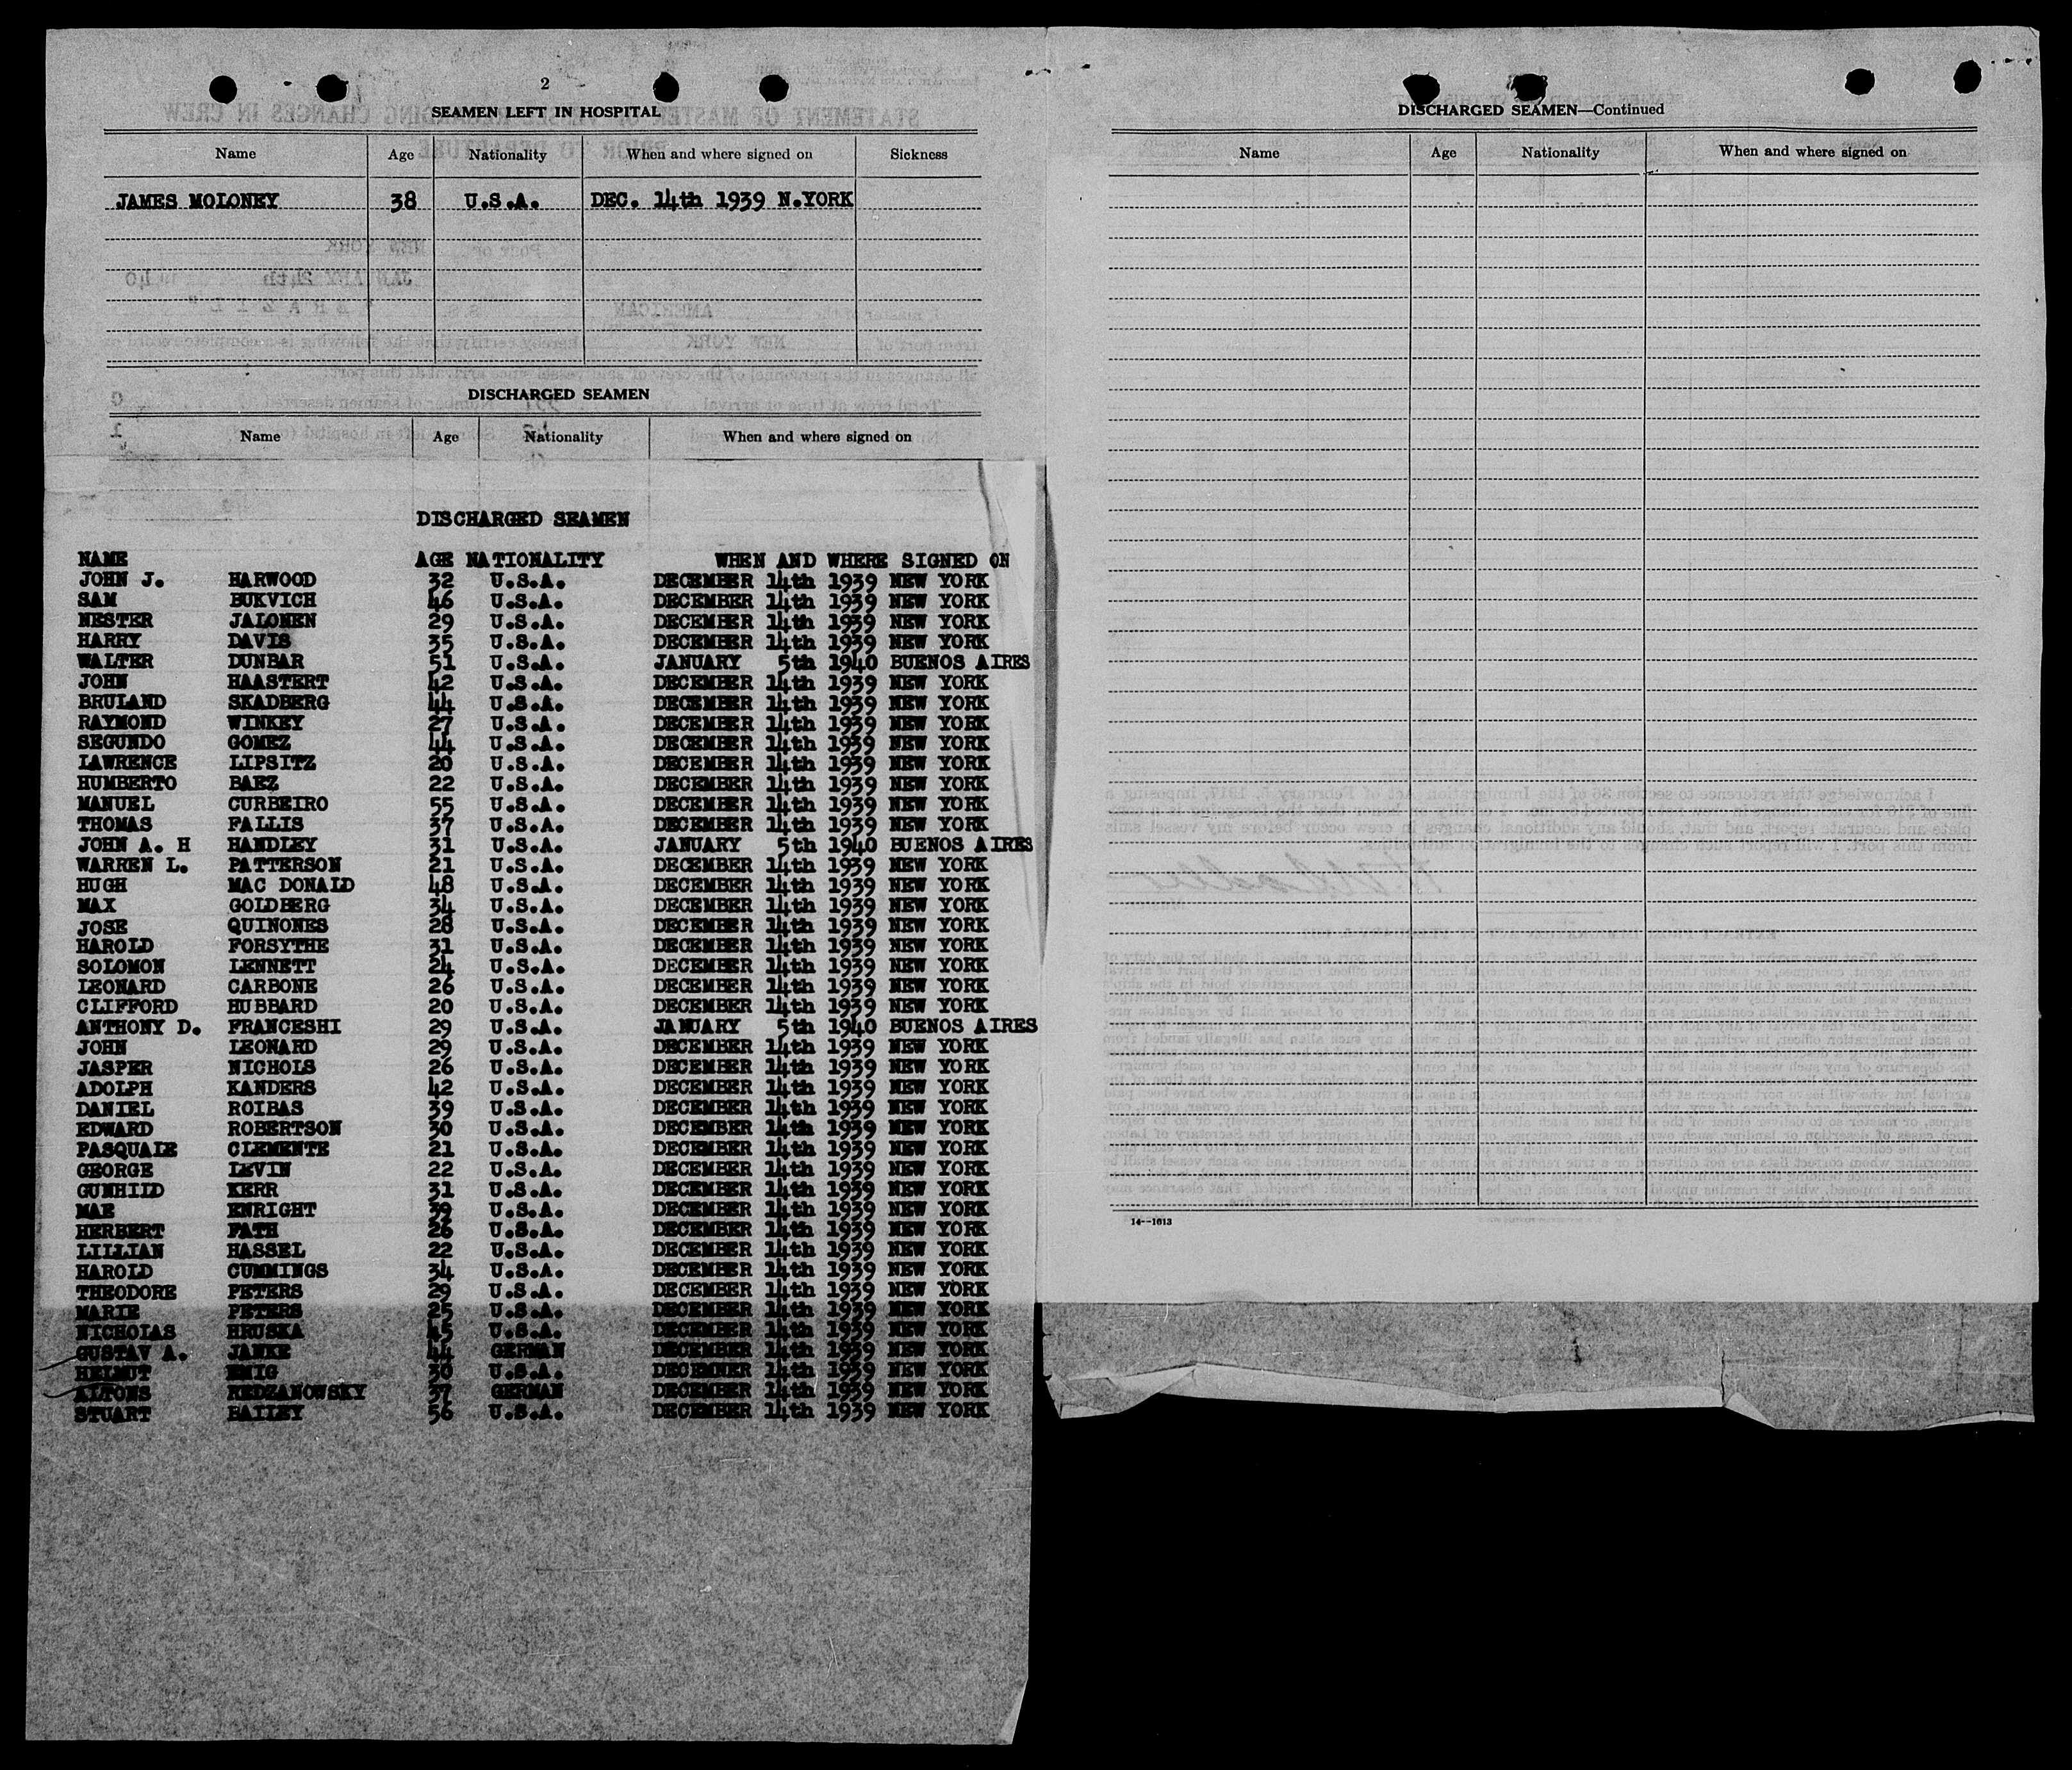 2
SEAMEN LEFT IN HOSPITAL
Name Age Nationality When and where signed on Sickness
JAMES MOLONEY 38 U.S.A. DEC. 14th 1939 N.YORK
DISCHARGED SEAMEN
Name Age Nationality When and where signed on
DISCHARGED SEAMEN
NAME AGE NATIONALITY WHEN AND WHERE SIGNED ON
JOHN J. HARWOOD 32 U.S.A. DECEMBER 14th 1939 NEW YORK
SAM BUKVICH 46 U.S.A. DECEMBER 14th 1939 NEW YORK
NESTER JALONEN 29 U.S.A. DECEMBER 14th 1939 NEW YORK
HARRY DAVIS 35 U.S.A. DECEMBER 14th 1939 NEW YORK
WALTER DUNBAR 51 U.S.A. JANUARY 5th 1940 BUENOS AIRES
JOHN HAASTERT 42 U.S.A. DECEMBER 14th 1939 NEW YORK
BRULAND SKADBERG 44 U.S.A. DECEMBER 14th 1939 NEW YORK
RAYMOND WINKEY 27 U.S.A. DECEMBER 14th 1939 NEW YORK
SEGUNDO GOMEZ 44 U.S.A. DECEMBER 14th 1939 NEW YORK
LAWRENCE LIPSITZ 20 U.S.A. DECEMBER 14th 1939 NEW YORK
HUMBERTO BAEZ 22 U.S.A. DECEMBER 14th 1939 NEW YORK
MANUEL CURBEIRO 55 U.S.A. DECEMBER 14th 1939 NEW YORK
THOMAS FALLIS 37 U.S.A. DECEMBER 14th 1939 NEW YORK
JOHN A. H HANDLEY 31 U.S.A. JANUARY 5th 1940 BUENOS AIRES
WARREN L. PATTERSON 21 U.S.A. DECEMBER 14th 1939 NEW YORK
HUGH MAC DONALD 48 U.S.A. DECEMBER 14th 1939 NEW YORK
MAX GOLDBERG 34 U.S.A. DECEMBER 14th 1939 NEW YORK
JOSE QUINONES 28 U.S.A. DECEMBER 14th 1939 NEW YORK
HAROLD FORSYTHE 31 U.S.A. DECEMBER 14th 1939 NEW YORK
SOLOMON LENNETT 24 U.S.A. DECEMBER 14th 1939 NEW YORK
LEONARD CARBONE 26 U.S.A. DECEMBER 14th 1939 NEW YORK
CLIFFORD HUBBARD 20 U.S.A. DECEMBER 14th 1939 NEW YORK
ANTHONY D. FRANCESHI 29 U.S.A. JANUARY 5th 1940 BUENOS AIRES
JOHN LEONARD 29 U.S.A. DECEMBER 14th 1939 NEW YORK
JASPER NICHOLS 26 U.S.A. DECEMBER 14th 1939 NEW YORK
ADOLPH KANDERS 42 U.S.A. DECEMBER 14th 1939 NEW YORK
DANIEL ROIBAS 39 U.S.A. DECEMBER 14th 1939 NEW YORK
EDWARD ROBERTSON 30 U.S.A. DECEMBER 14th 1939 NEW YORK
PASQUALE CLEMENTE 21 U.S.A. DECEMBER 14th 1939 NEW YORK
GEORGE LEVIN 22 U.S.A. DECEMBER 14th 1939 NEW YORK
GUNHILD KERR 31 U.S.A. DECEMBER 14th 1939 NEW YORK
MAE ENRIGHT 39 U.S.A. DECEMBER 14th 1939 NEW YORK
HERBERT FATH 26 U.S.A. DECEMBER 14th 1939 NEW YORK
LILLIAN HASSEL 22 U.S.A. DECEMBER 14th 1939 NEW YORK
HAROLD CUMMINGS 34 U.S.A. DECEMBER 14th 1939 NEW YORK
THEODORE PETERS 29 U.S.A. DECEMBER 14th 1939 NEW YORK
MARIE PETERS 25 U.S.A. DECEMBER 14th 1939 NEW YORK
NICHOLAS HRUSKA 45 U.S.A. DECEMBER 14th 1939 NEW YORK
GUSTAV A. JANKE 44 GERMAN DECEMBER 14th 1939 NEW YORK
HELMUT 30 U.S.A. DECEMNER 14th 1939 NEW YORK
ALFONS REDZANOWSKY 37 GERMAN DECEMBER 14th 1939 NEW YORK
STUART BAILEY 56 U.S.A. DECEMBER 14th 1939 NEW YORK
DISCHARGED SEAMEN—Continued
Name Age Nationality When and where signed on
14--1613